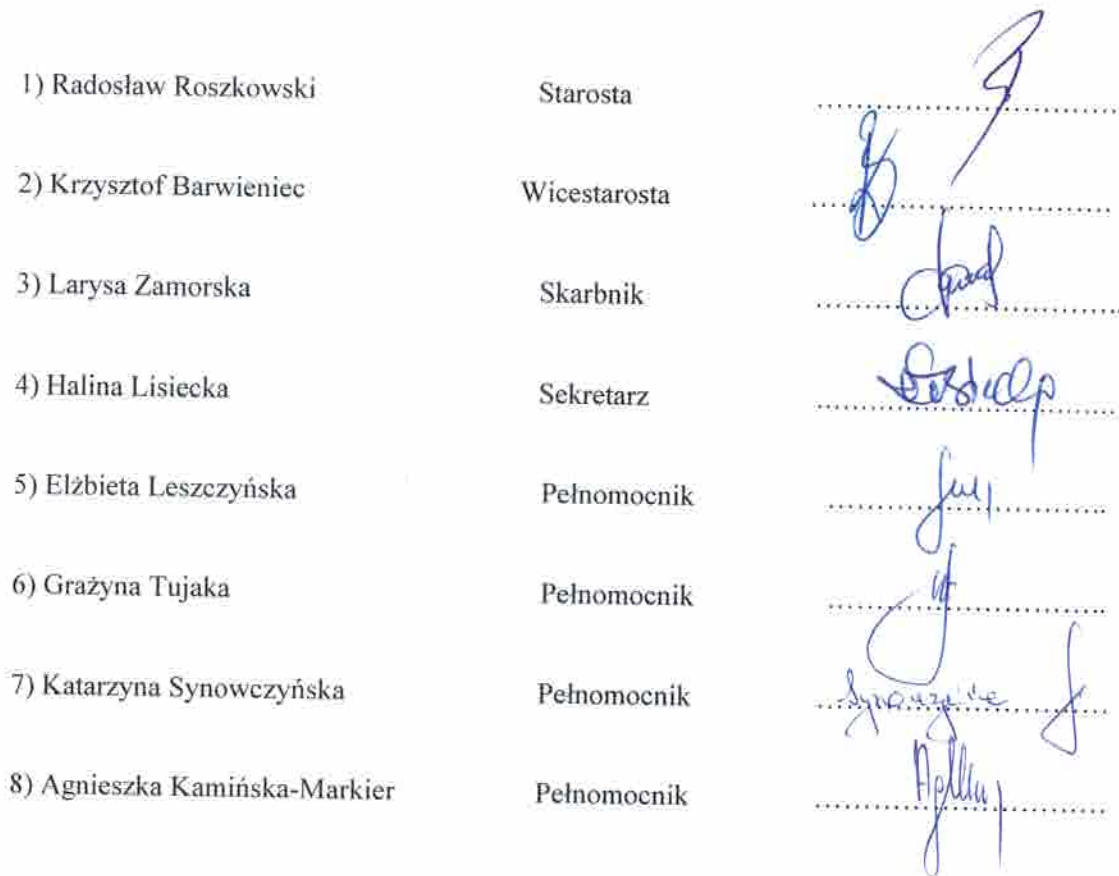 1) Radosław Roszkowski Starosta ........................................
2) Krzysztof Barwieniec Wicestarosta ........................................
3) Larysa Zamorska Skarbnik ........................................
4) Halina Lisiecka Sekretarz ........................................
5) Elżbieta Leszczyńska Pełnomocnik ........................................
6) Grażyna Tujaka Pełnomocnik ........................................
7) Katarzyna Synowczyńska Pełnomocnik ........................................
8) Agnieszka Kamińska-Markier Pełnomocnik ........................................